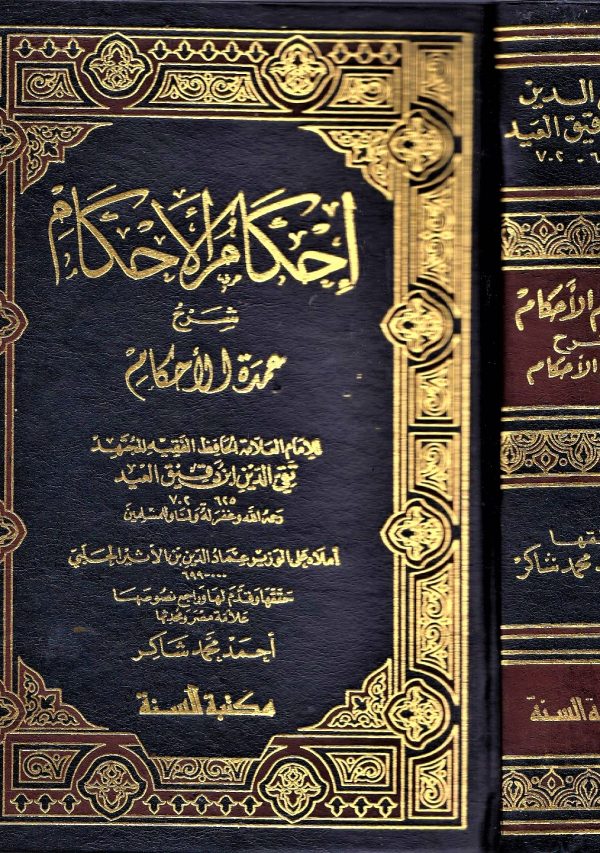 إحكام الأحكام
شرح
عمدة الأحكام
للإمام العلامة الحافظ الفقيه المجتهد
تقي الدين ابن دقيق العيد
٦٢٥ ٧٠٢
رحمه الله وغفر له ولنا وللمسلمين
أملاه على الوزير عماد الدين بن الأثير الحلبي
٠٠٠-٦٩٩
حققها وقدم لها وراجع نصوصها
علامة مصر ومحدثها
أحمد محمد شاكر
مكتبة السنة
الدين
دقيق العيد
٧٠٢
الأحكام
شرح
الأحكام
محمد شاكر
السنة